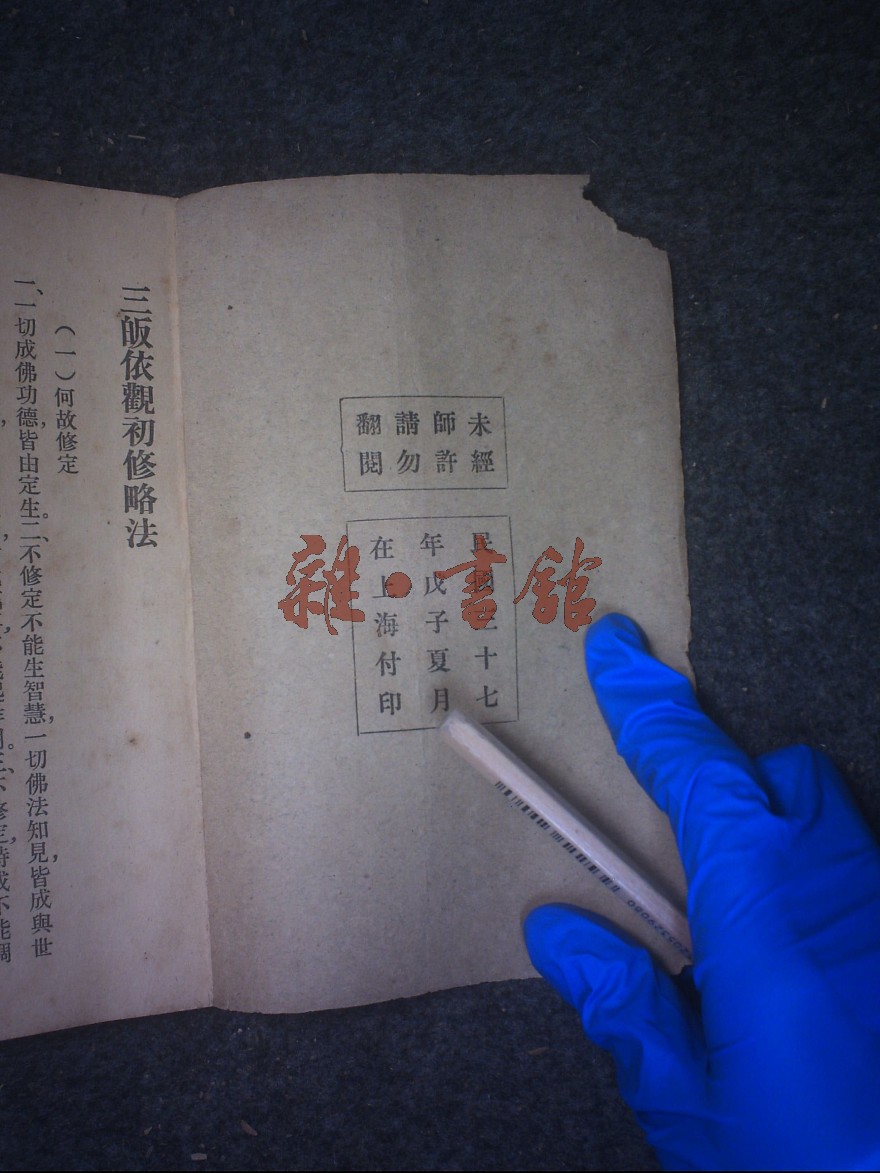 未經
師許
請勿
翻閱
民國三十七
年戊子夏月
在上海付印
三皈依觀初修略法
（一）何故修定
一、一切成佛功德，皆由定生。二、不修定不能生智慧，一切佛法知見，皆成與世
雜·書館